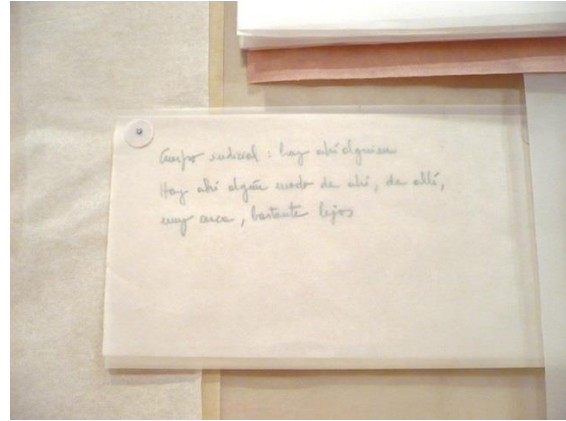 Cuerpo indicial : hay ahí alguien
Hay ahí algún modo de ahí, de allí,
muy cerca, bastante lejos